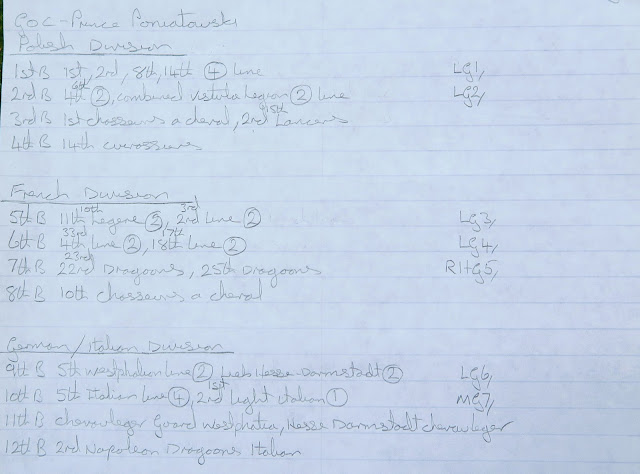 GOC - Prince Poniatowski
Polish Division
1st B 1st, 2nd, 8th, 14th ④ line LG1,
2nd B 4th 6th ②, combined vistula legion ② line LG2,
3rd B 1st chasseurs a cheval, 2nd 15th Lancers
4th B 14th cuirassiers
French Division
5th B 11th 10th Legere ③, 2nd 3rd line ② LG3,
6th B 4th 33rd line ②, 18th 17th line ② LG4,
7th B 22nd 23rd Dragoons, 25th Dragoons RHG5,
8th B 10th chasseurs a cheval
German/Italian Division
9th B 5th Westphalian line ②, Hesse-Darmstadt ② LG6,
10th B 5th Italian line ④, 2nd 1st light italian ① MG7,
11th B chevauleger Guard Westphalia, Hesse Darmstadt chevauleger
12th B 2nd Napoleon Dragoons Italian